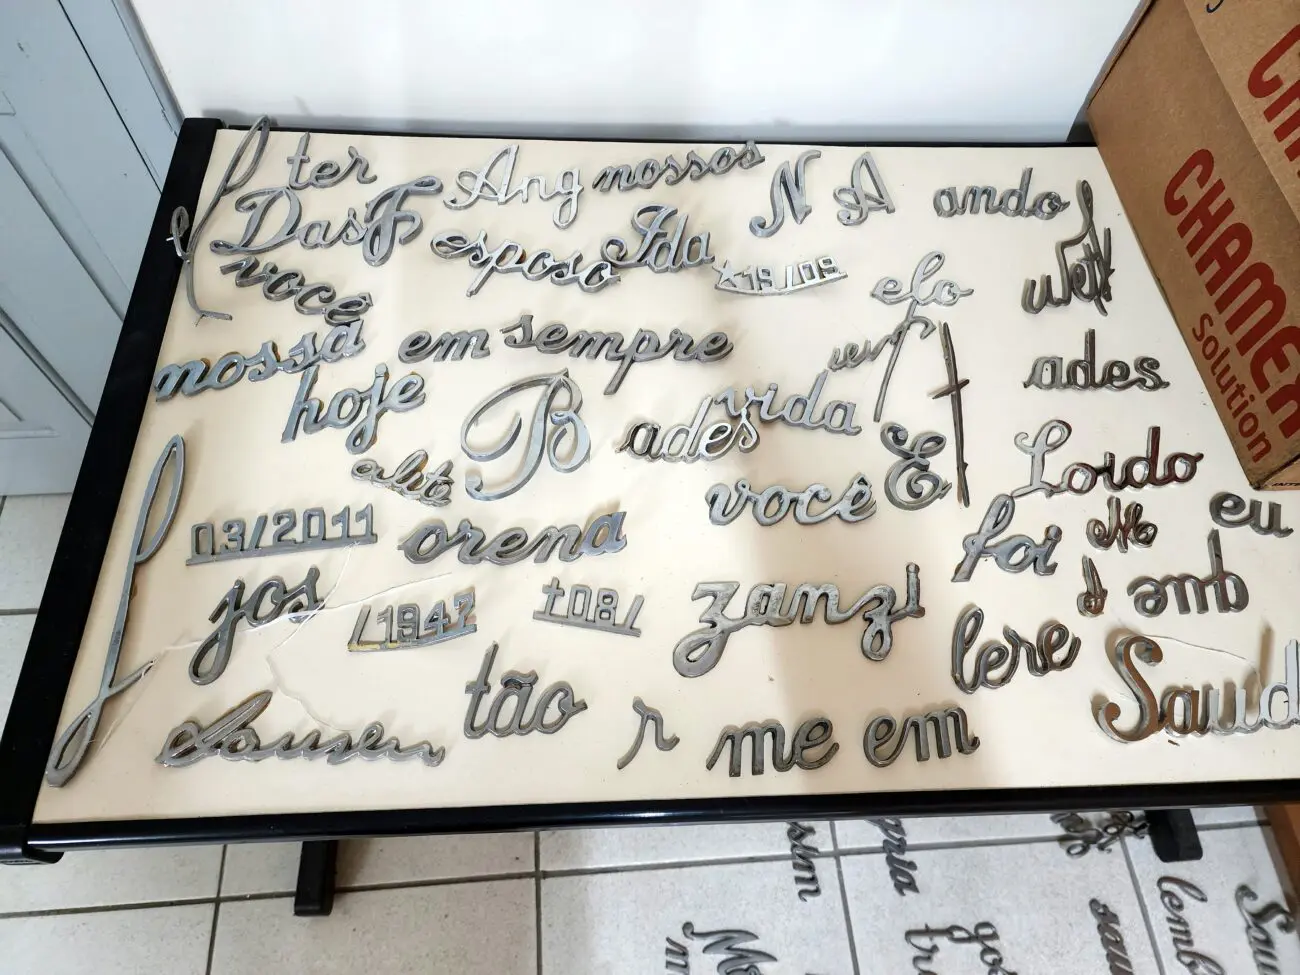 ter
Ang
nossos
N
A
ando
Das
F
esposo
Ida
★19/09
você
elo
nossa
em
sempre
ades
hoje
B
vida
ades
E
Lordo
você
03/2011
orena
foi
eu
jos
/1947
✝08/
zanzi
que
lere
Saud
tão
r
me
em
CHAMEX
Solution
ssim
lemb